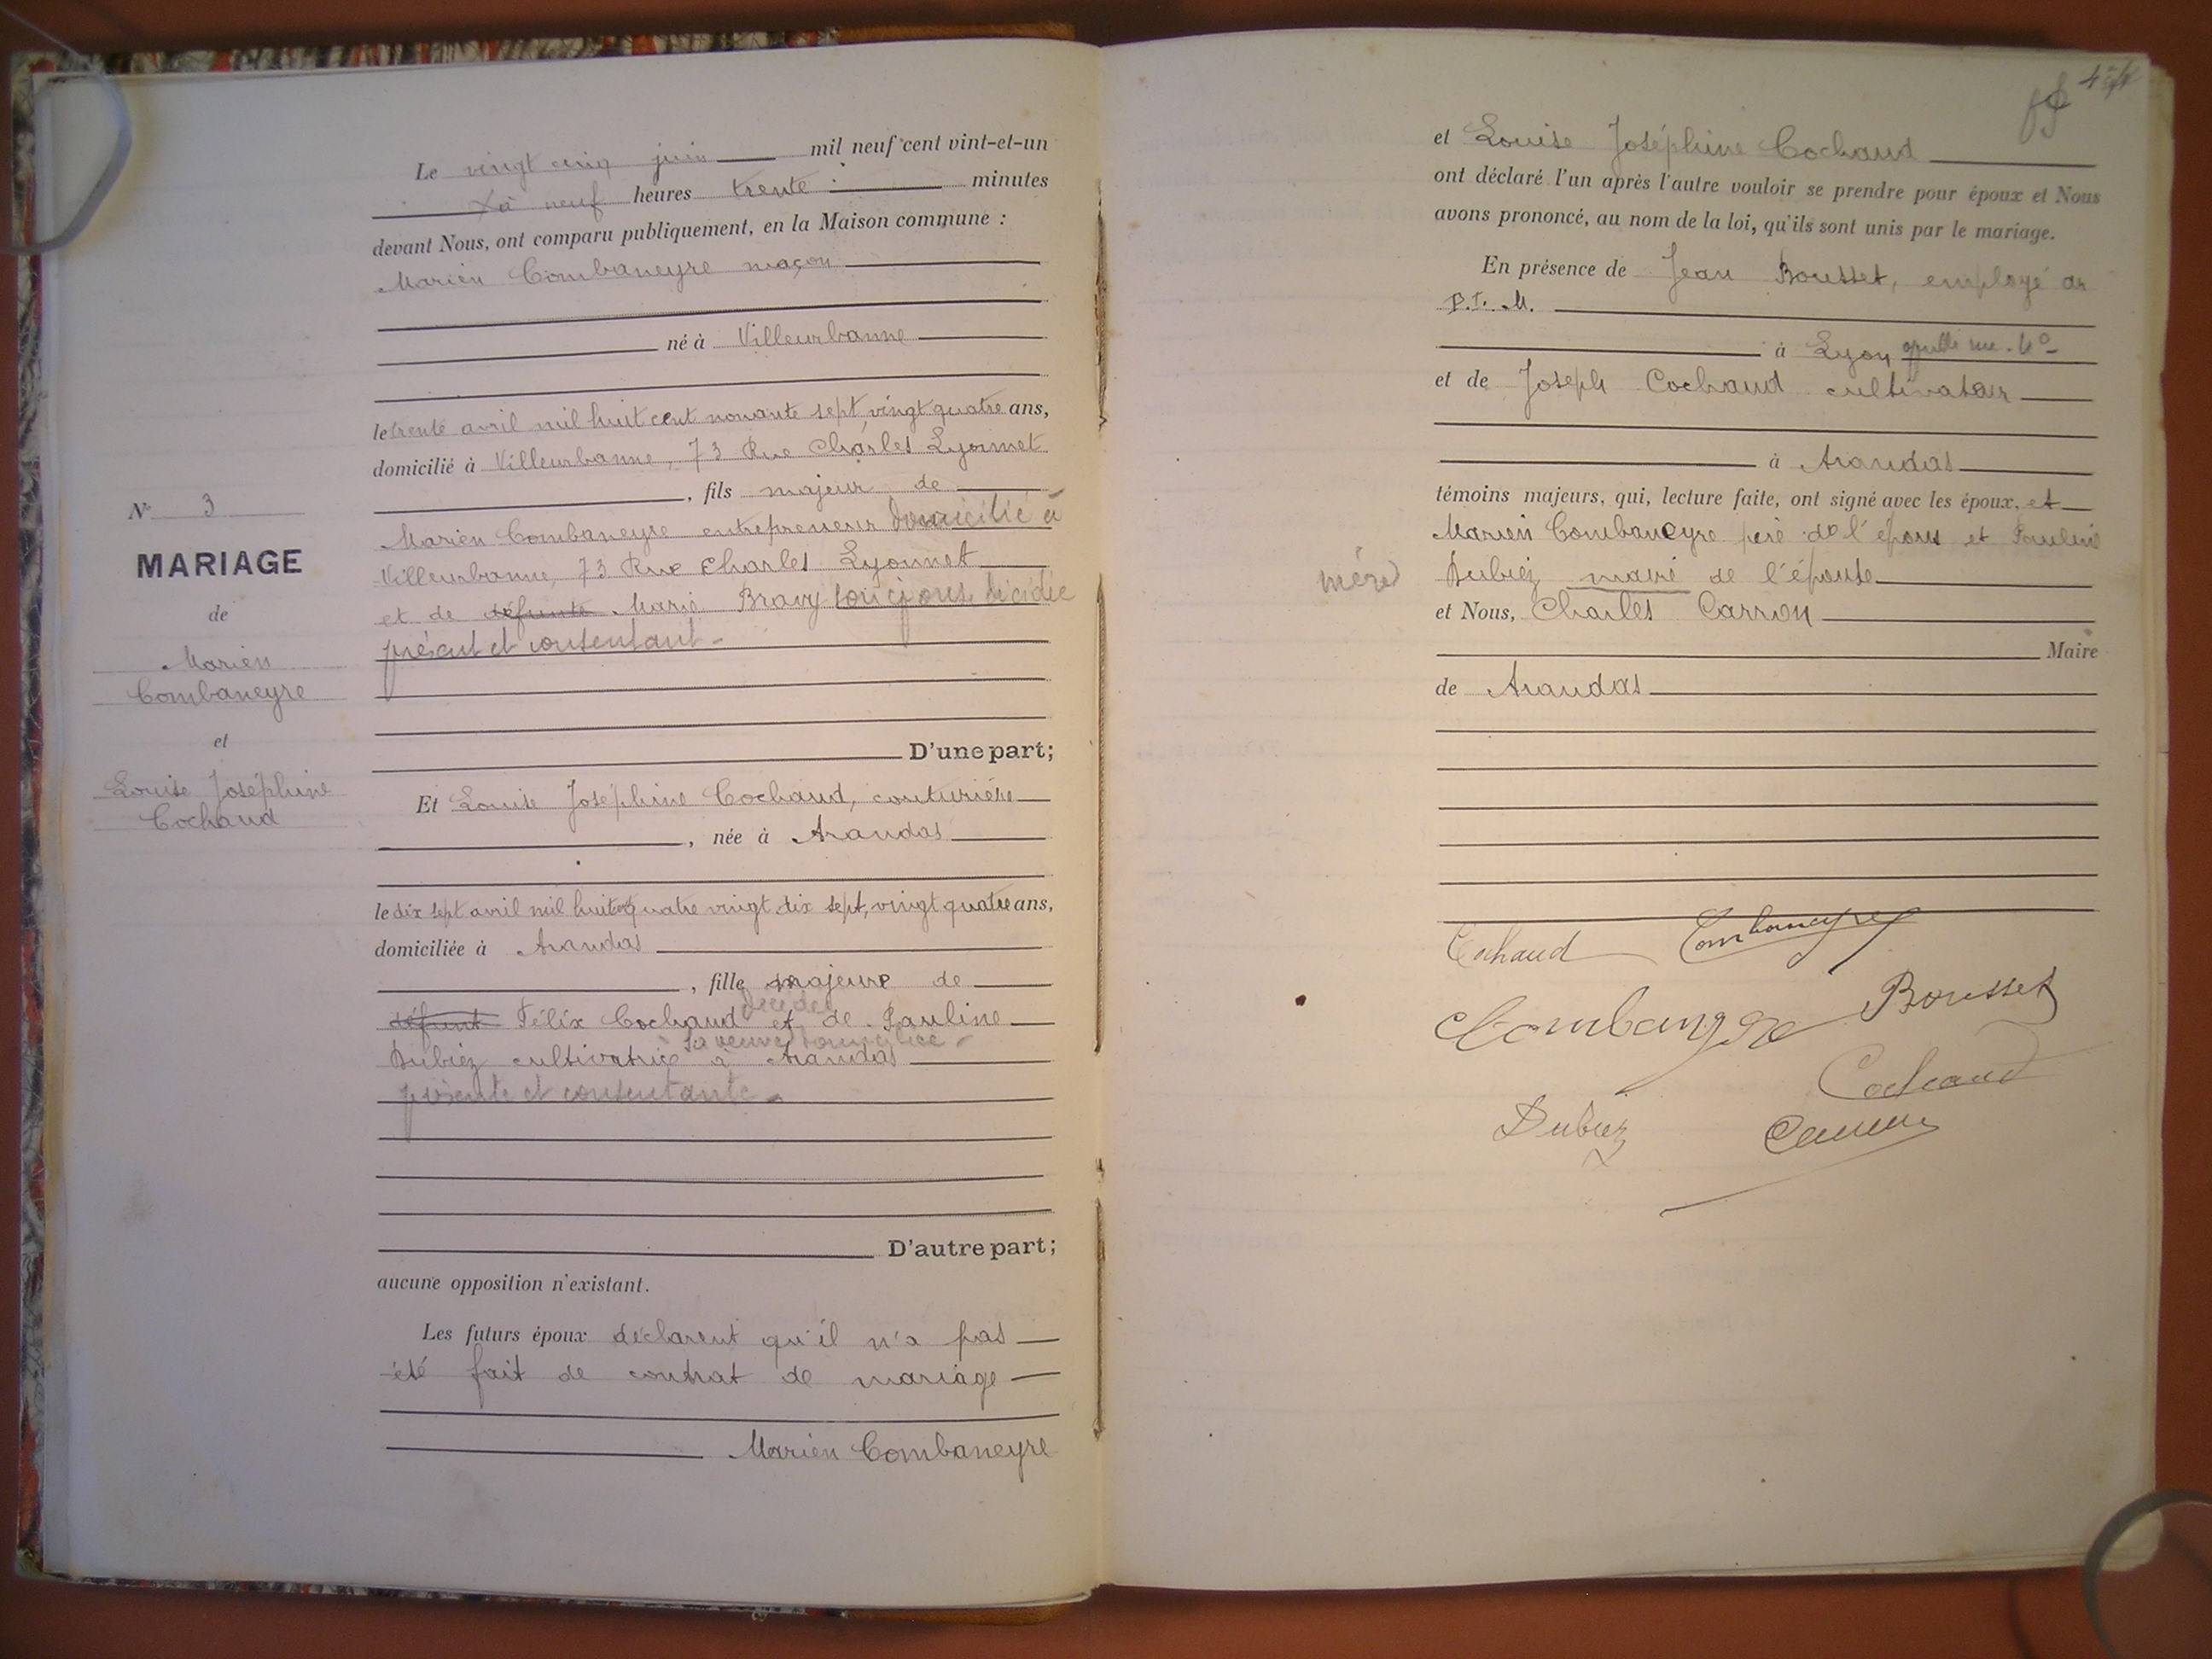 Le vingt cinq juin mil neuf cent vint-et-un
à neuf heures trente minutes
devant Nous, ont comparu publiquement, en la Maison commune :
Marien Combaneyre maçon
né à Villeurbanne
le trente avril mil huit cent nonante sept, vingt quatre ans,
domicilié à Villeurbanne, 73 Rue Charles Lyonnet
, fils majeur de
Marien Combaneyre entrepreneur domicilié à
Villeurbanne, 73 Rue Charles Lyonnet
et de défunte Marie Bravy son épouse décédée
présent et consentant -
D'une part;
Nº 3
MARIAGE
de
Marien
Combaneyre
et
Louise Joséphine
Cochaud
Et Louise Joséphine Cochaud, couturière
, née à Arandas
le dix sept avril mil huit cent quatre vingt dix sept, vingt quatre ans,
domiciliée à Arandas
, fille majeure de
décédé
défunt Félix Cochaud et de Pauline
sa veuve domiciliée
Dubiez cultivatrice à Arandas
présente et consentante -
D'autre part;
aucune opposition n'existant.
Les futurs époux déclarent qu'il n'a pas
été fait de contrat de mariage
Marien Combaneyre
et Louise Joséphine Cochaud
ont déclaré l'un après l'autre vouloir se prendre pour époux et Nous
avons prononcé, au nom de la loi, qu'ils sont unis par le mariage.
En présence de Jean Bousset, employé au
P. L. M.
à Lyon
et de Joseph Cochaud cultivateur
à Arandas
témoins majeurs, qui, lecture faite, ont signé avec les époux, et
Marien Combaneyre père de l'époux et Pauline
mère Dubiez de l'épouse
et Nous, Charles Carron
Maire
de Arandas
Cochaud Combaneyre
Combaneyre Bousset
Cochaud
Dubiez Carron